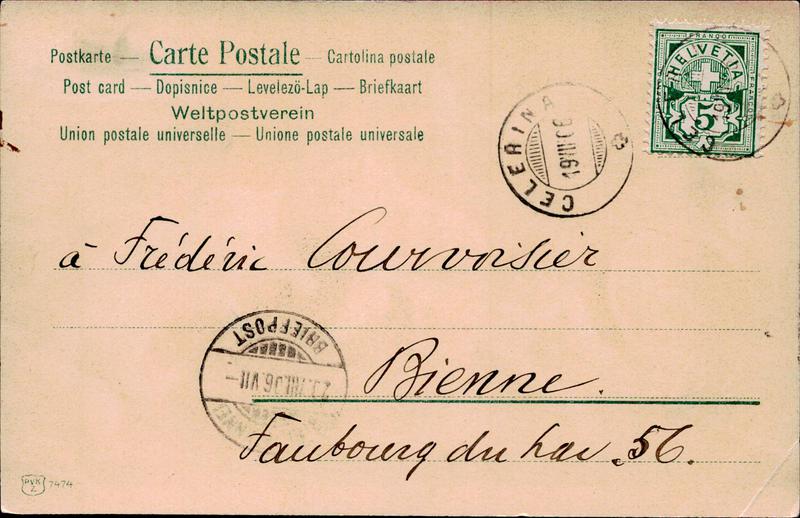 Postkarte — Carte Postale — Cartolina postale
Post card — Dopisnice — Levelezö-Lap — Briefkaart
Weltpostverein
Union postale universelle — Unione postale universale
FRANCO
HELVETIA
5
CELERINA
19 VIII 06
à Frédéric Courvoisier
BRIEFPOST
VIII.06.VII—
Bienne.
Faubourg du Lac. 56.
PVK
Z
7474